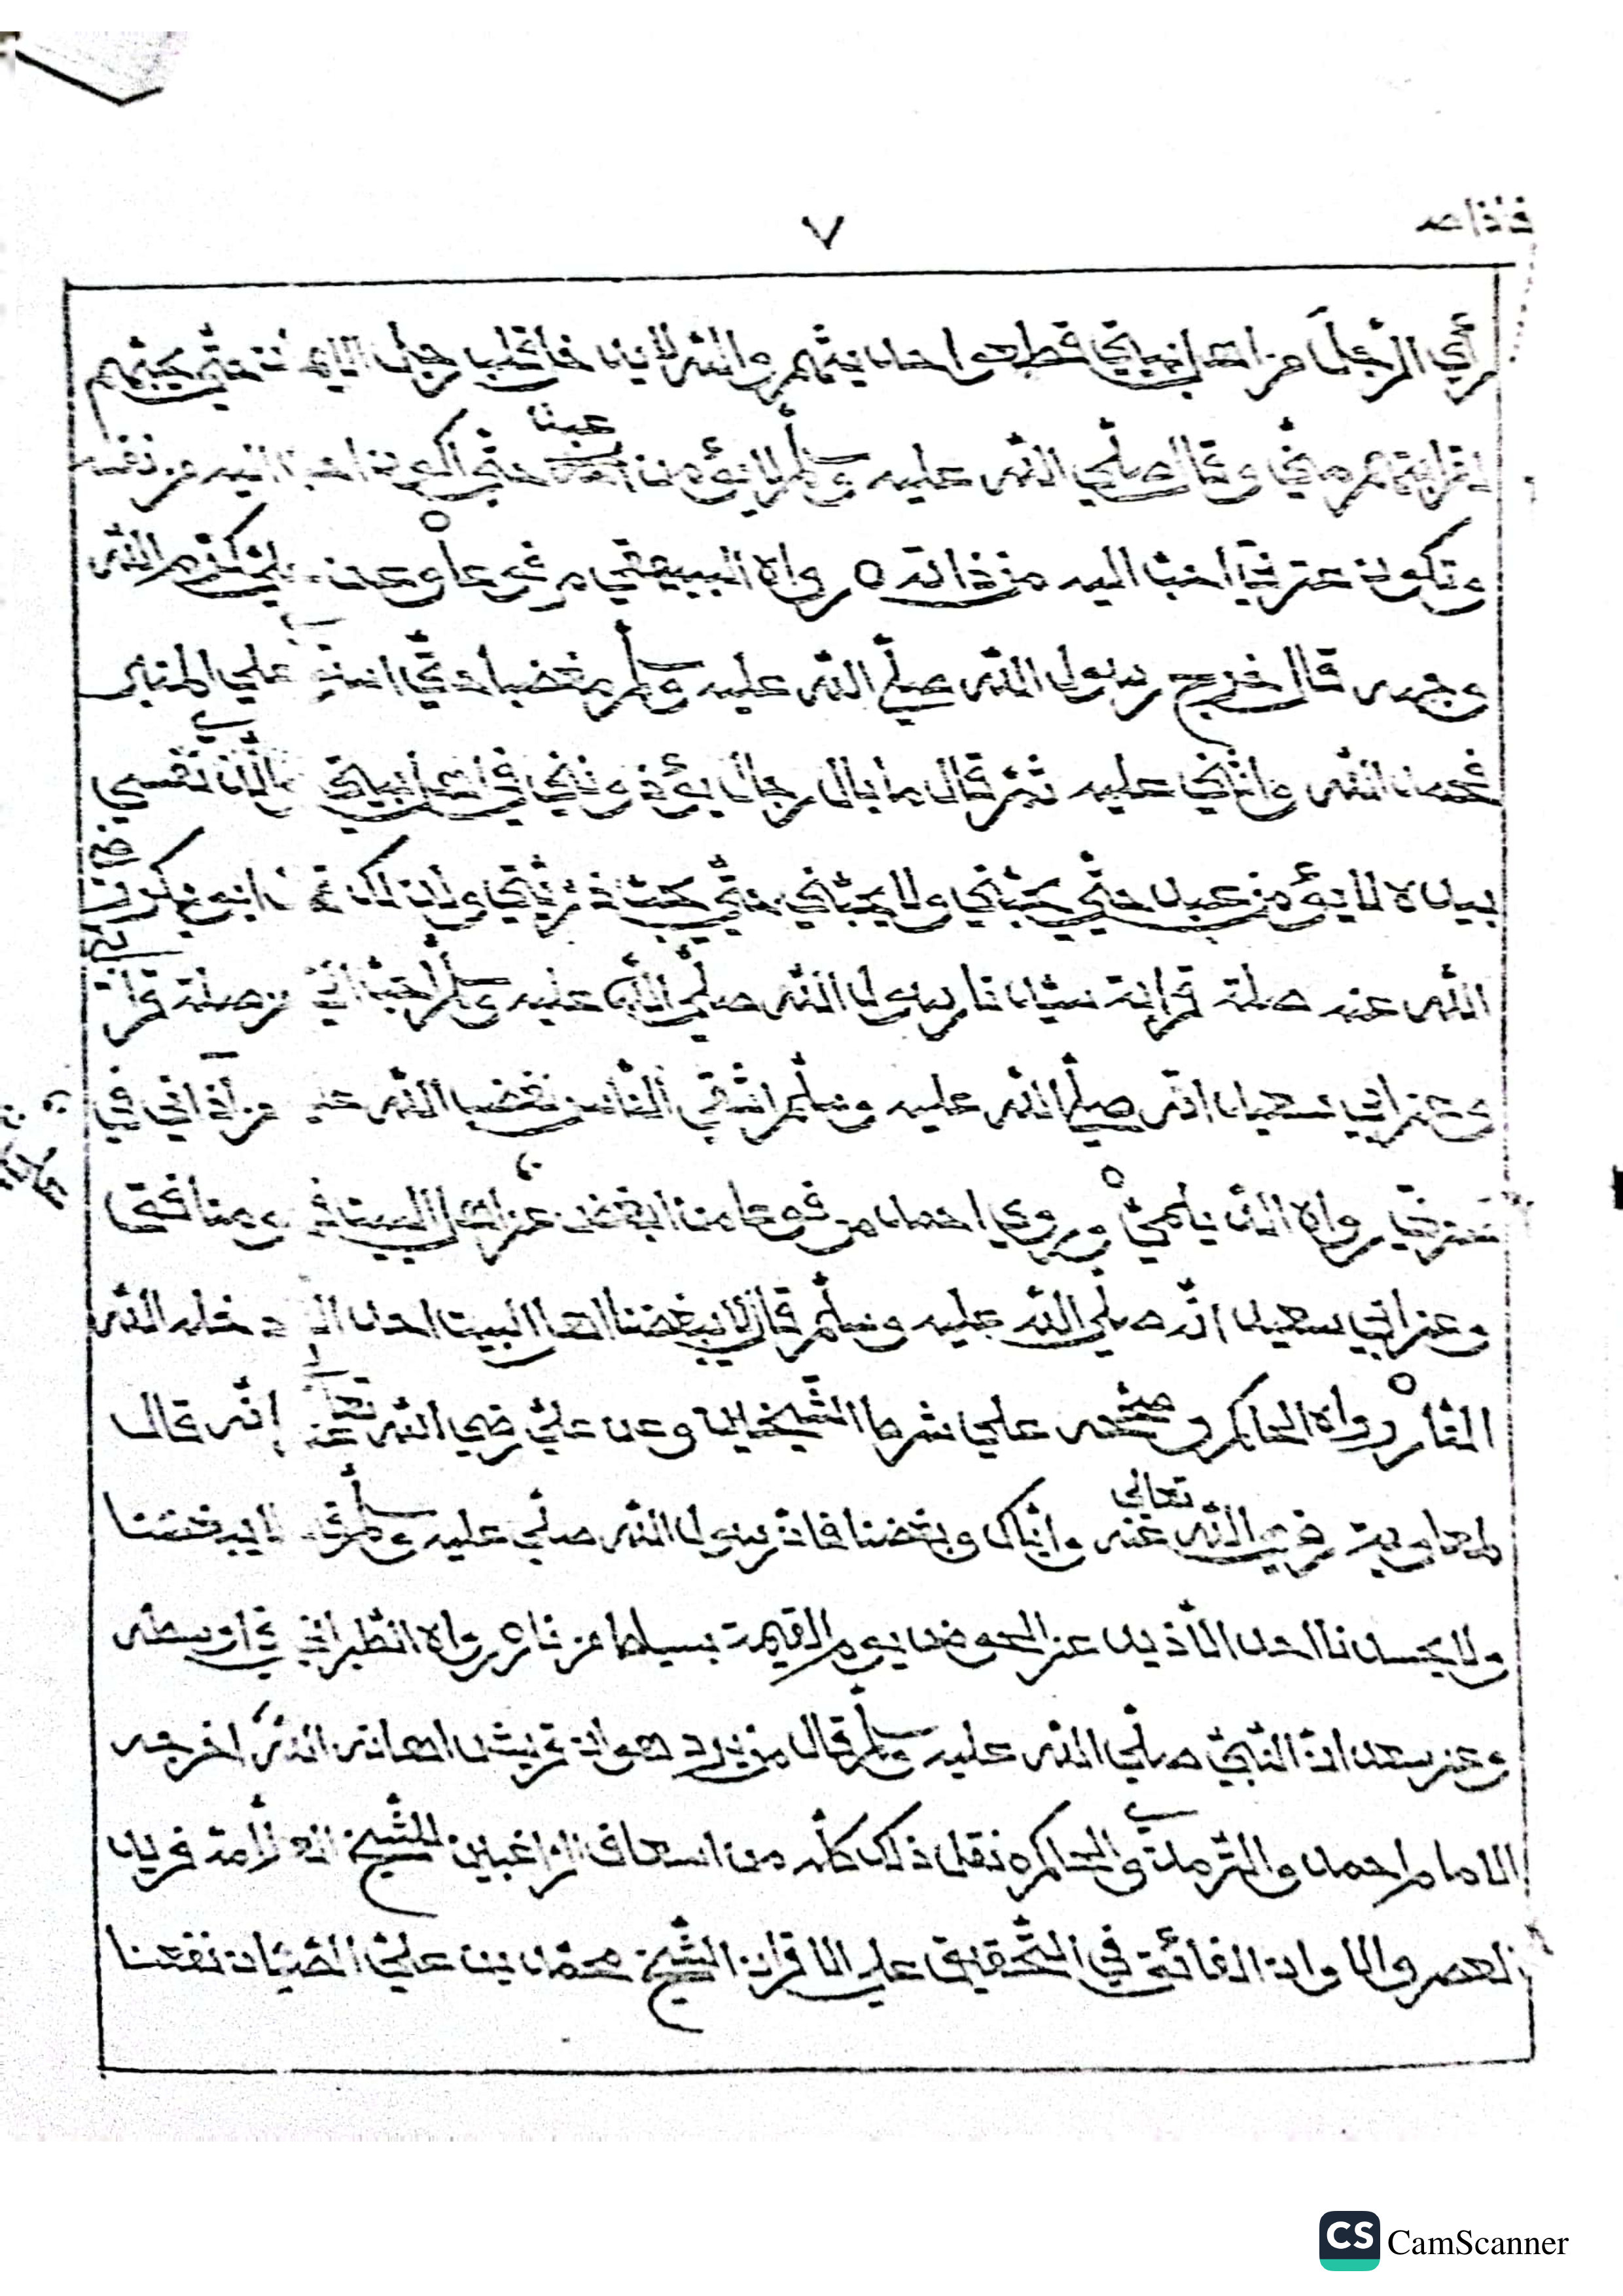 ٧
رأي الرّجل من اهل بيتي قطعوا حديثهم والله لا يدخل قلب رجل الايمان حتّى يحبّهم
لقرابتهم منّي وقال صلّي الله عليه وسلّم لا يؤمن عبد حتّي اكون احبّ اليه من نفسه
وتكون عترتي احبّ اليه من ذاته ٥ رواه البيهقي مرفوعا وعن علي كرّم الله
وجهه قال خرج رسول الله صلّي الله عليه وسلّم مغضبا حتّي استوي علي المنبر
فحمد الله واثني عليه ثمّ قال ما بال رجال يؤذونني في اهل بيتي والّذي نفسي
بيده لا يؤمن عبد حتّي يحبّني ولا يحبّني حتّي يحبّ ذرّيّتي ولذلك قال ابو بكر رضي
الله عنه صلة قرابة سيّدنا رسول الله صلّي الله عليه وسلّم احبّ اليّ من صلة قرابتي
وعن ابي سعيد انّه صلّي الله عليه وسلّم اشتدّ غضب الله علي من آذاني في
عترتي رواه الدّيلميّ وروي احمد مرفوعا من ابغض اهل البيت فهو منافق
وعن ابي سعيد انّه صلّي الله عليه وسلّم قال لا يبغضنا اهل البيت احد الا ادخله الله
النّار رواه الحاكم وصحّحه علي شرط الشّيخين وعن عليّ رضي الله تعالي عنه إنّه قال
لمعاوية رضي الله تعالي عنه وايّاك وبغضنا فانّ رسول الله صلّي عليه وسلّم قال لا يبغضنا
ولا يحسدنا احد الّا ذيد عن الحوض يوم القيمة بسياط من نار رواه الطّبراني في اوسطه
وعن سعد انّ النّبيّ صلّي الله عليه وسلّم قال من يرد هوان قريش اهانه الله اخرجه
الامام احمد والتّرمذيّ والحاكم ٥ نقل ذلك كلّه من اسعاف الرّاغبين للشّيخ العلّامة فريد
العصر والاوان الفائق في التّحقيق علي الاقران الشّيخ محمّد بن عليّ الصّبّان نفعنا
CS CamScanner